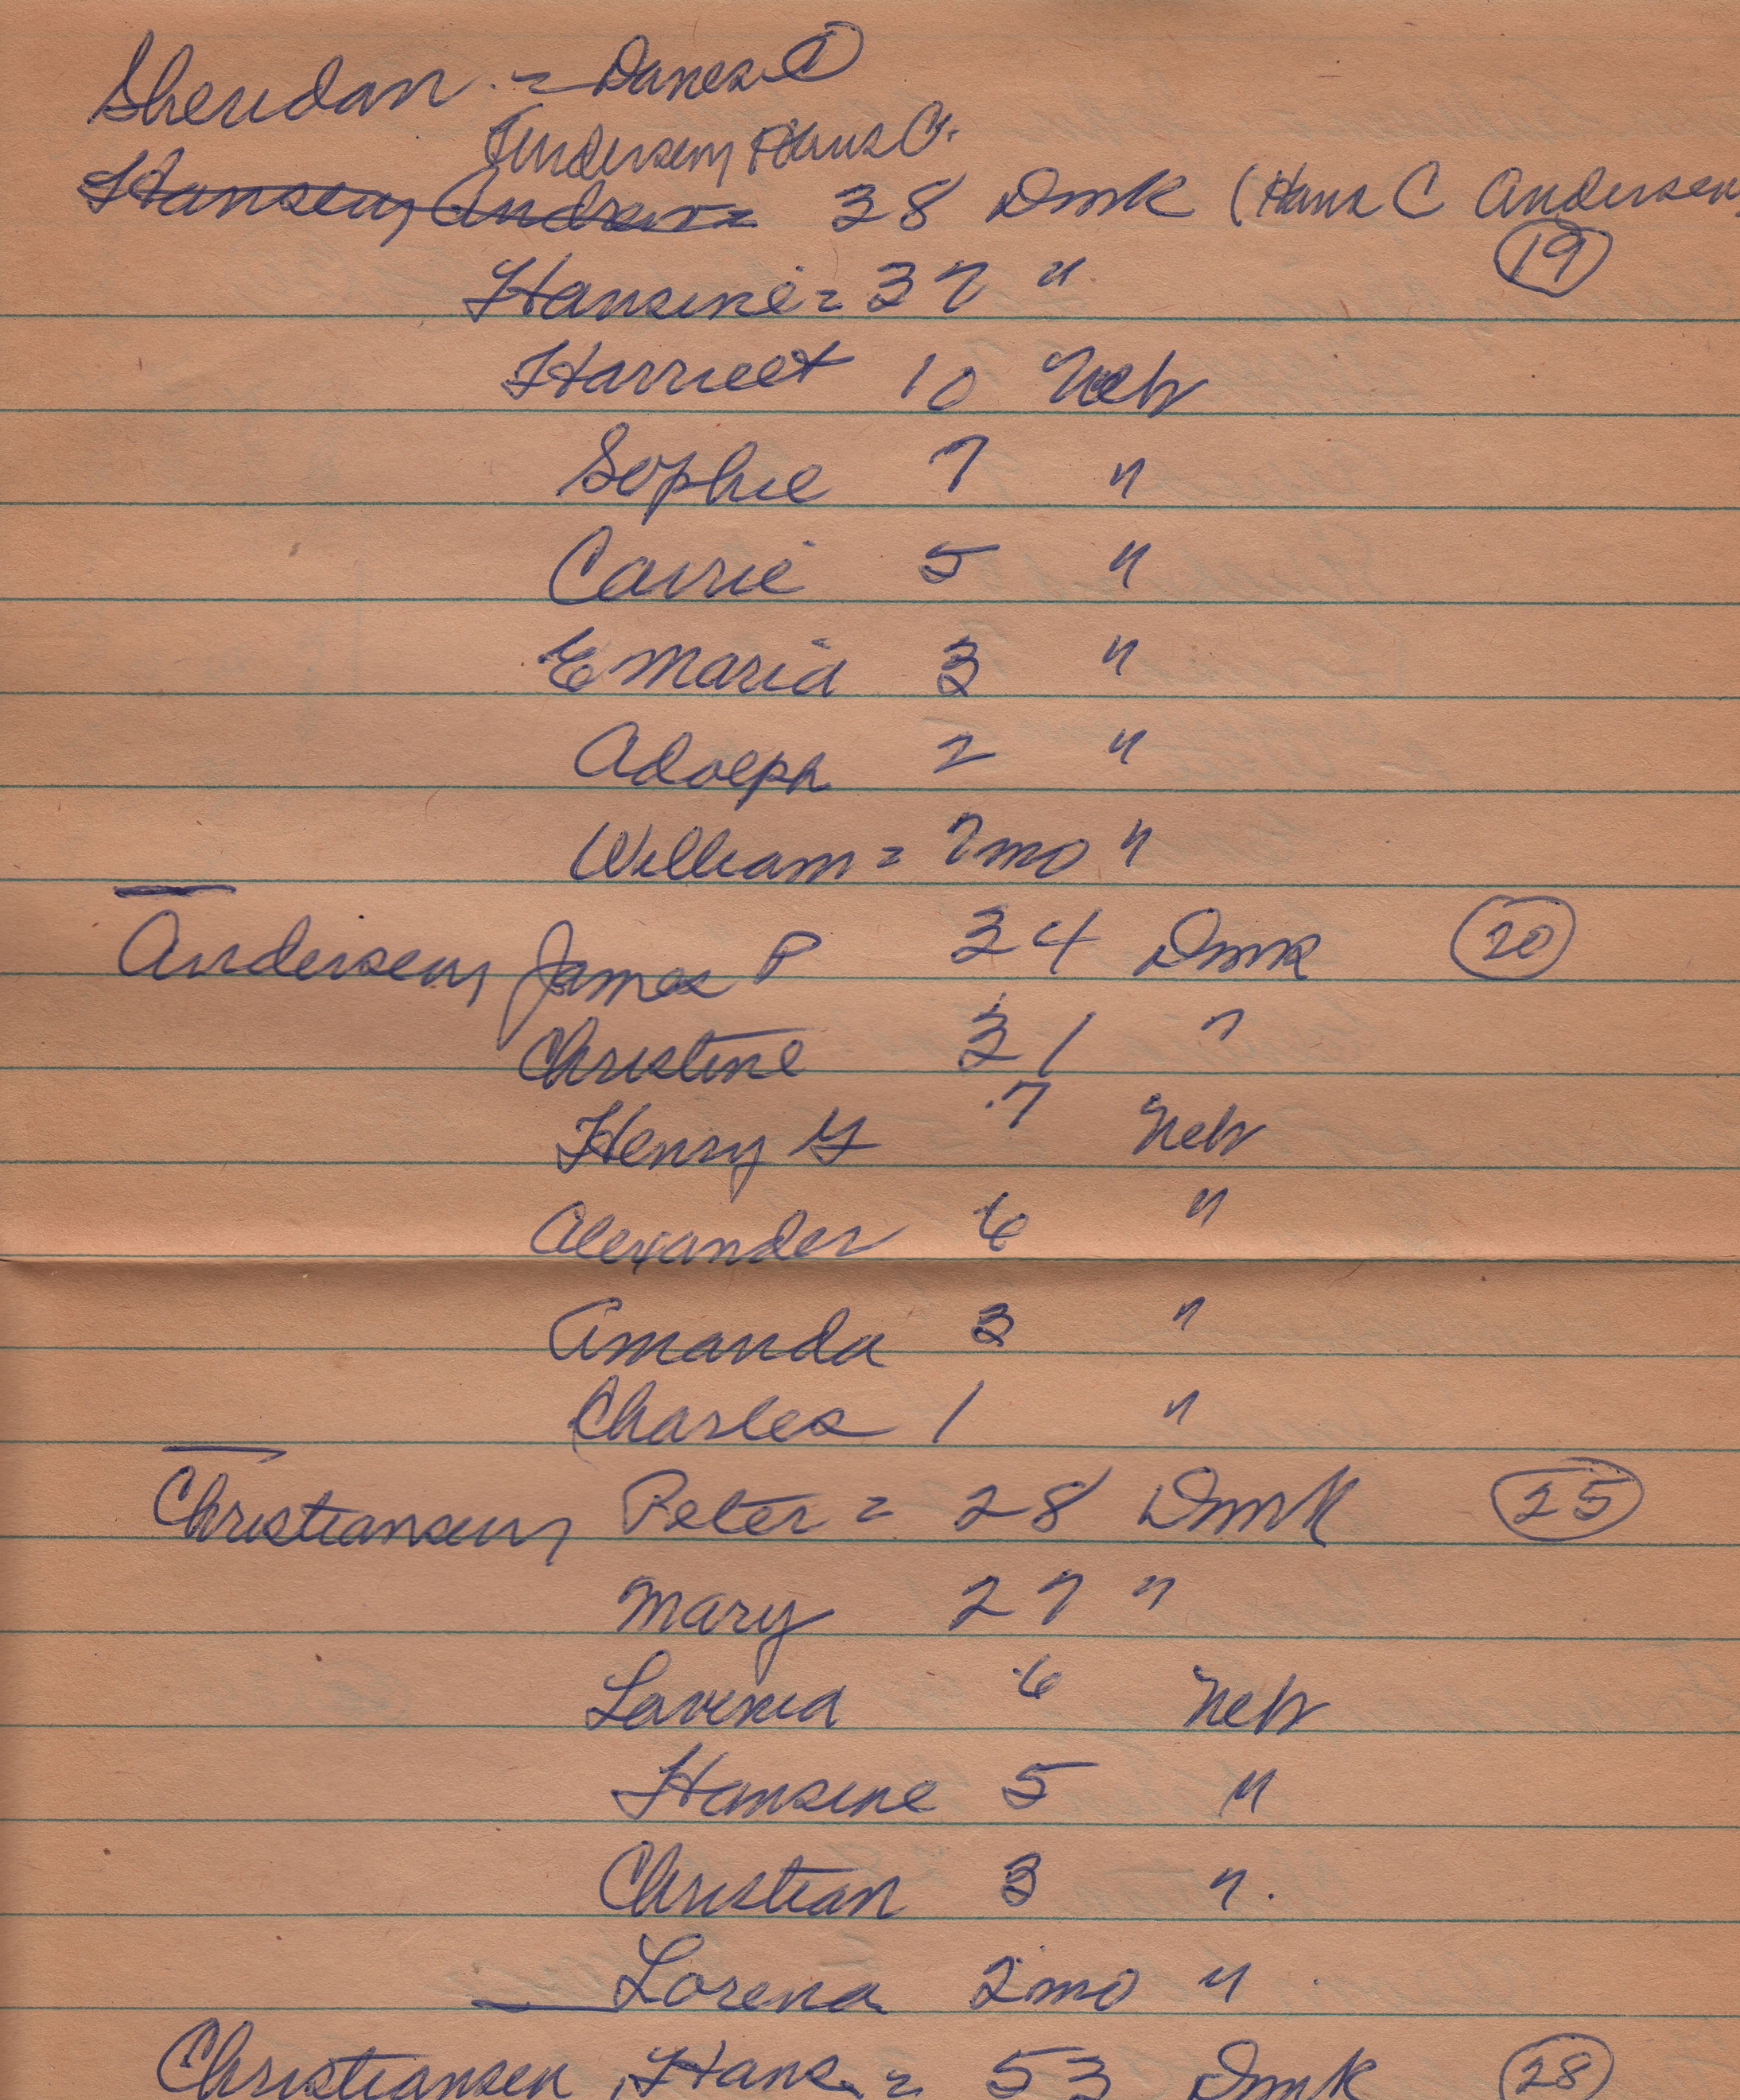 Sheridan = Danes ①
Andersen, Hans C.
Hansen, Andrew = 38 Dmk (Hans C Andersen,
Hansine = 37 "
⑲
Harriet 10 Neb
Sophie 7 "
Carrie 5 "
E Maria 3 "
Adolph 2 "
William = 7mo "
Andersen, James P 34 Dmk ⑳
Christine 31 "
Henry G 7 Neb
Alexander 6 "
Amanda 3 "
Charles 1 "
Christiansen, Peter = 28 Dmk ㉕
Mary 27 "
Lavinia 6 Neb
Hansine 5 "
Christian 3 "
Lorena 2mo "
Christiansen, Hans = 53 Dmk ㉘